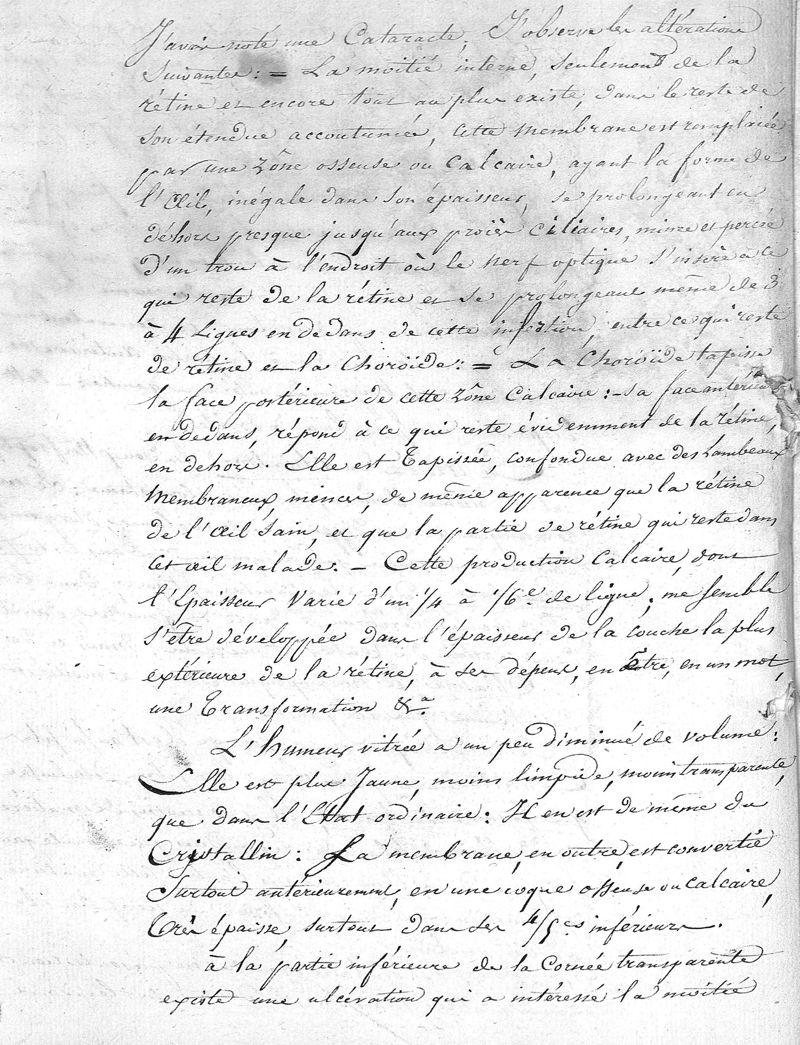 J'avais noté une Cataracte, J'observe les altérations
suivantes: = La moitié interne, seulement de la
rétine et encore tout au plus existe, dans le reste de
son étendue accoutumée, Cette membrane est remplacée
par une Zône osseuse ou Calcaire, ayant la forme de
l'Œil, inégale dans son épaisseur, se prolongeant en
déhors presque jusqu'aux procès Ciliaires, mince et percée
d'un trou à l'endroit où le nerf optique s'insère à ce
qui reste de la rétine et se prolongeant même de 3
à 4 Lignes en dedans de cette insertion, entre ce qui reste
de rétine et la Choroïde: = La Choroïde tapisse
la face postérieure de cette Zône Calcaire: - sa face antérieure
en dedans, répond à ce qui reste évidemment de la rétine,
en dehors. Elle est Tapissée, confondue avec des Lambeaux
membraneux, minces, de même apparence que la rétine
de l'œil sain, et que la partie de rétine qui reste dans
cet œil malade. - Cette production Calcaire, dont
l'Epaisseur varie d'un 1/4 à 1/6e de ligne, me semble
s'être développée dans l'épaisseur de la couche la plus
extérieure de la rétine, à ses dépens, en être, en un mot,
une Transformation &a.
L'humeur vitrée a un peu diminué de volume:
Elle est plus Jaune, moins limpide, moins transparente,
que dans l'Etat ordinaire: Il en est de même du
Crystallin: La membrane, en outre, est convertie
surtout antérieurement, en une coque osseuse ou calcaire,
Très épaisse, surtout dans ses 4/5es inférieurs.
à la partie inférieure de la Cornée transparente
existe une ulcération qui a intéressé la moitié